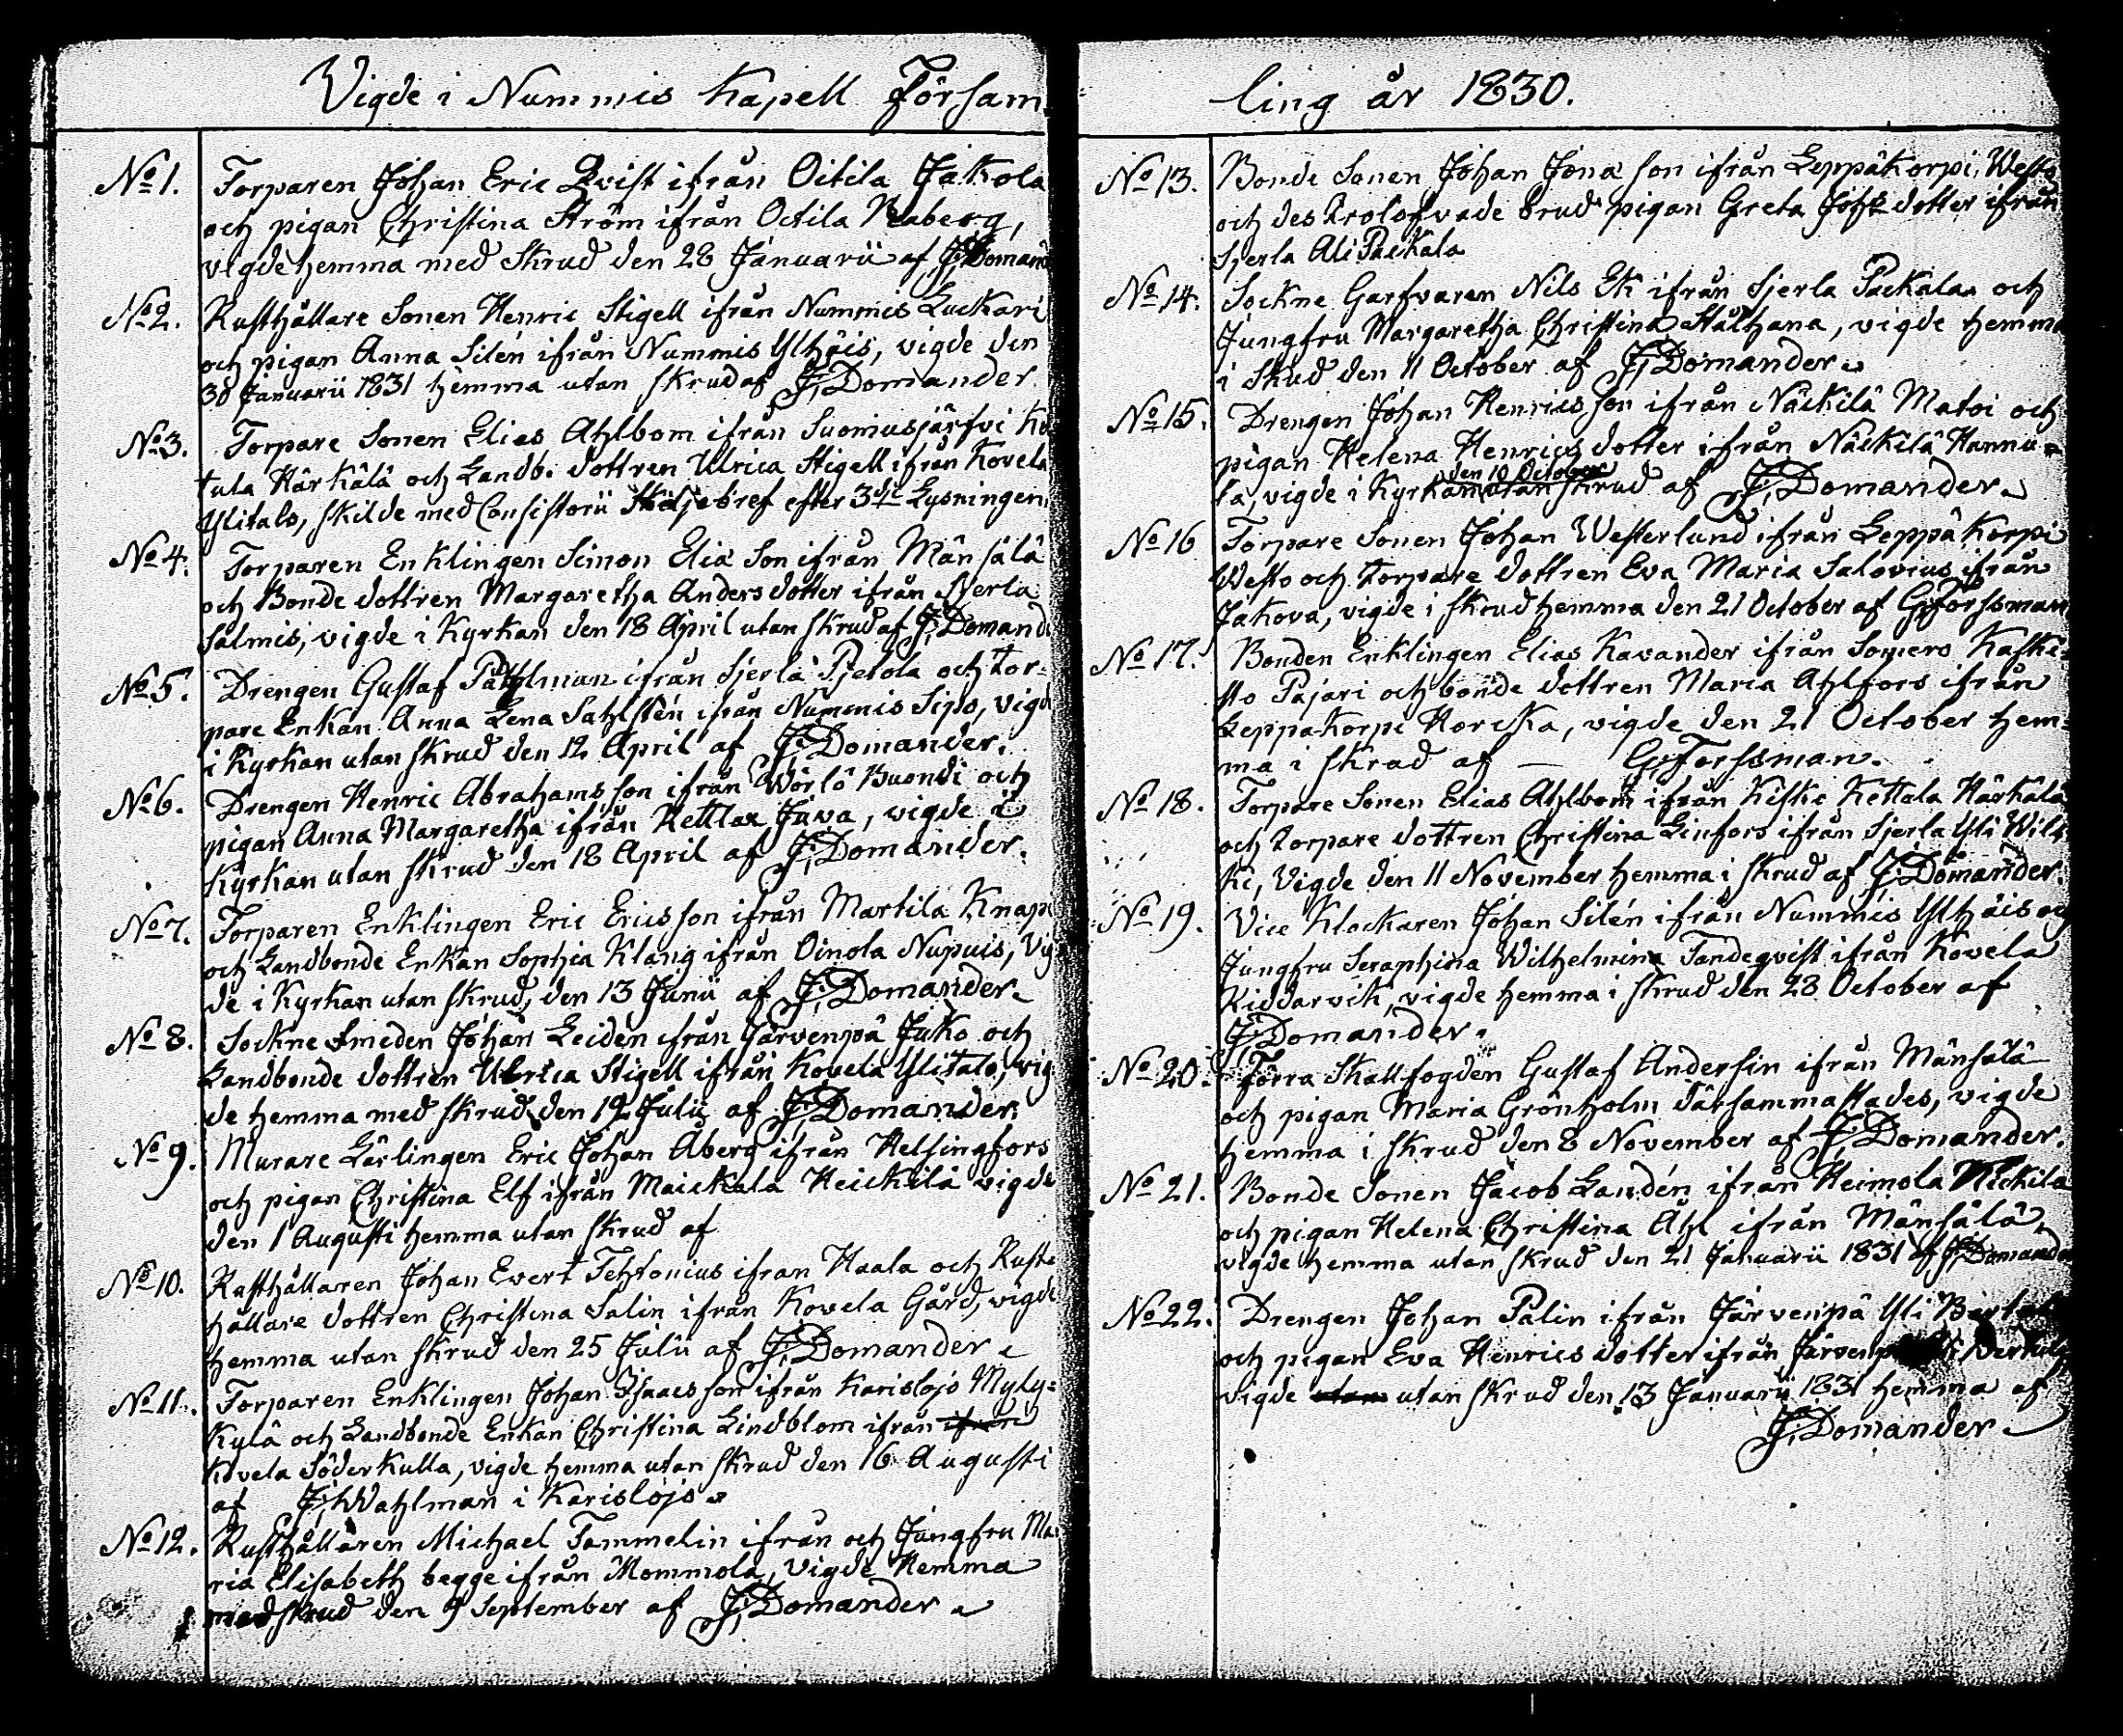 Vigde i Nummis Kapell Församling år 1830.
No 1. Torparen Johan Eric Qvist ifrån Oitila Jakola
och pigan Christina Ström ifrån Octila Naberg,
vigde hemma med Skrud den 28 Januarii af J: Domand
No 2. Rusthållare Sonen Henric Stigell ifrån Nummis Luckari
och pigan Anna Silén ifrån Nummis Ylhäis, vigde den
30 Januarii 1831 hemma utan skrud af J: Domander
No 3. Torpare Sonen Elias Ahlbom ifrån Suomusjärfvi Ke
tula Härkälä och Landb. dottren Ulrica Stigell ifrån Kovela
Ylitalo, skilde med Consistorii Skiljebref efter 3dje Lysningen
No 4. Torparen Enklingen Simon Elia Son ifrån Mänsälä
och Bonde dottren Margaretha Anders dotter ifrån Sjerla
Salmis, vigde i Kyrkan den 18 April utan skrud af J: Domand
No 5. Drengen Gustaf Påhlman ifrån Sjerla Pjetola och Tor-
pare Enkan Anna Lena Sahlstén ifrån Nummis Sipo, vigd
i Kyrkan utan skrud den 12 April af J: Domander.
No 6. Drengen Henric Abrahams son ifrån Wörlö Buondi och
pigan Anna Margaretha ifrån Hettlax Juva, vigde i
Kyrkan utan skrud den 18 April af J: Domander.
No 7. Torparen Enklingen Eric Erics son ifrån Martila Knapi
och Landbonde Enkan Sophia Klang ifrån Oinola Nupuis, Vig
de i Kyrkan utan skrud, den 13 Junii af J: Domander
No 8. Sockne Smeden Johan Leidén ifrån Järvenpä Juko och
Landbonde dottren Ulrica Stigell ifrån Kovela Ylitalo, vig
de hemma med skrud den 12 Julii af J: Domander.
No 9. Murare Lärlingen Eric Johan Åberg ifrån Helsingfors
och pigan Christina Elf ifrån Maickala Heickilä vigde
den 1 Augusti hemma utan skrud af
No 10. Rusthållaren Johan Evert Tehtonius ifran Haala och Rust-
hållare dottren Christina Salin ifrån Kovela Gård, vigde
hemma utan skrud den 25 Julii af J: Domander
No 11. Torparen Enklingen Johan Isaacs son ifrån Karislojo Myly=
Kylä och Landbonde Enkan Christina Lindblom ifrån ifrån
Kovela Söderkulla, vigde hemma utan skrud den 16 Augusti
af J: Wahlman i Karislojo
No 12. Rusthållaren Michael Tammelin ifrån och Jungfru Ma
ria Elisabeth begge ifrån Mommola, Vigde Hemma
med skrud den 9 September af J: Domander
No 13. Bonde Sonen Johan Jona son ifrån Leppäkorpi, Westo
och des trolofvade brud pigan Greta Johs dotter ifrån
Sjerla Ali Packala
No 14. Sockne Garfvaren Nils Ek ifrån Sjerla Packala och
Jungfru Margaretha Christina Stålhana, vigde hemma
i Skud den 11 October af J: Domander
No 15. Drengen Johan Henrics son ifrån Näckilä Matoi och
pigan Helena Henrics dotter ifrån Näckilä Hannu=
la, vigde i Kyrkan den 10 October utan skrud af J: Domander
No 16 Torpare Sonen Johan Westerlund ifrån Leppäkorpi
Westo och torpare dottren Eva Maria Salovius ifrån
Jakova, vigde i skrud hemma den 21 October af G: Forssman
No 17. Bonden Enklingen Elias Kavander ifrån Somero Kaske=
sto Pajari och bonde dottren Maria Ahlfors ifrån
Leppäkorpi Horcka, vigde den 21 October hem=
ma i skrud af — G: Forssman.
No 18. Torpare Sonen Elias Ahlbom ifrån Kisko Kettala Härkälä
och torpare dottren Christina Linfors ifrån Sjerla Yli Wils
ki, Vigde den 11 November hemma i skrud af J: Domander.
No 19. Vice Klockaren Johan Silén ifrån Nummis Ylhäis och
Jungfru Seraphina Wilhelmina Tandeqvist ifrån Kovela
Riddarvik, vigde hemma i skrud den 28 October af
J: Domander.
No 20. Förra Skallfogden Gustaf Andersin ifrån Mänsälä
och pigan Maria Grönholm därsammastädes, vigde
hemma i skrud den 8 November af J: Domander.
No 21. Bonde Sonen Jacob Landén ifrån Heimola Hickila
och pigan Helena Christina Åhl ifrån Mänsälä,
vigde hemma utan skrud den 21 Januarii 1831 af J: Domander
No 22. Drengen Johan Palin ifrån Järvenpä Yli
och pigan Eva Henrics dotter ifrån
vigde utan utan skrud den 13 Januarii 1831 hemma af
J: Domander